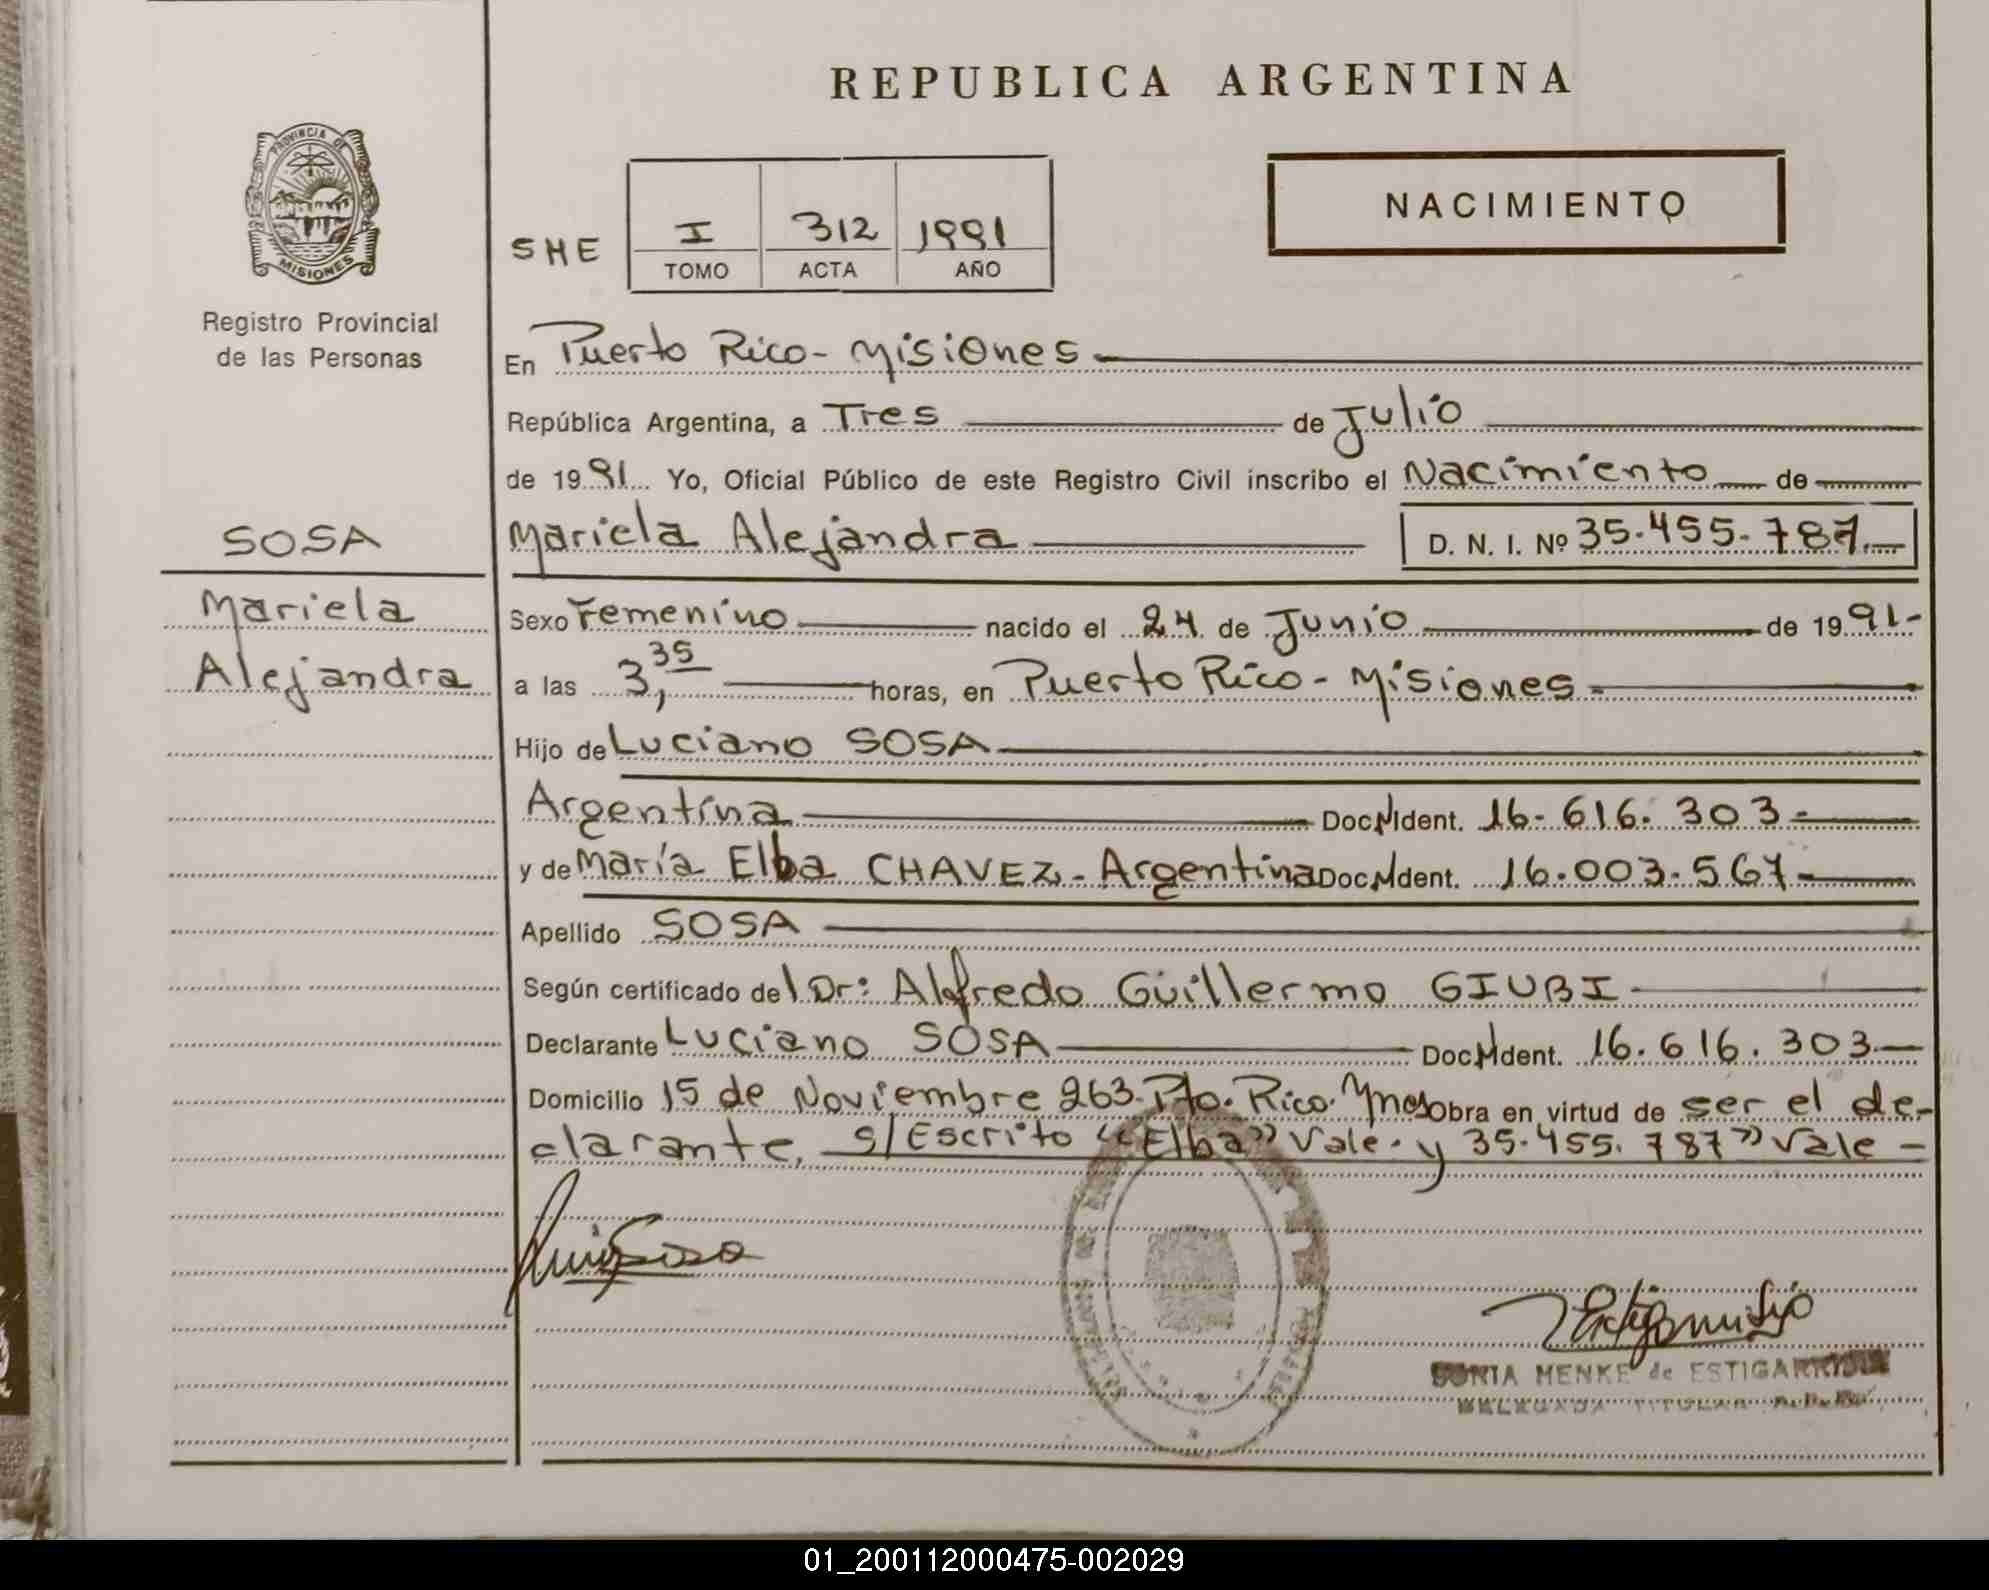 REPUBLICA ARGENTINA
PROVINCIA DE
MISIONES
Registro Provincial
de las Personas
NACIMIENTO
SHE
I 312 1991
TOMO ACTA AÑO
En Puerto Rico - Misiones
República Argentina, a Tres de Julio
de 1991 Yo, Oficial Público de este Registro Civil inscribo el Nacimiento de
SOSA
Mariela Alejandra D. N. I. Nº 35.455.787.
Mariela
Sexo Femenino nacido el 24 de Junio de 1991-
Alejandra
a las 3,35 horas, en Puerto Rico - Misiones -
Hijo de Luciano SOSA
Argentina Doc. N Ident. 16.616.303-
y de María Elba CHAVEZ - Argentina Doc. N Ident. 16.003.567-
Apellido SOSA
Según certificado del Dr: Alfredo Guillermo GIUBI
Declarante Luciano SOSA Doc. N Ident. 16.616.303
Domicilio 15 de Noviembre 263. Pto. Rico. Mnes Obra en virtud de ser el de-
clarante, s/Escrito "Elba" Vale. y 35.455.787" Vale -
SONIA MENKE de ESTIGARRIBIA
DELEGADA TITULAR
01_200112000475-002029